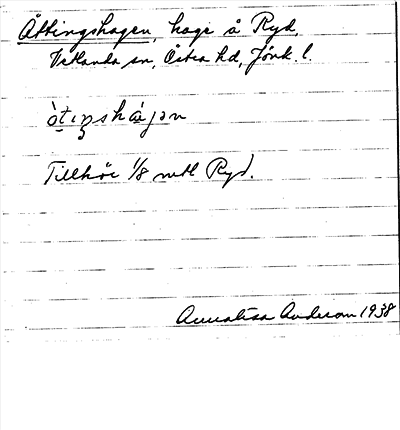 Åttingshagen, hage å Ryd,
Vetlanda sn, Östra hd, Jönk. l.
åtiŋshàgən
Tillhör 1/8 mtl Ryd.
Annalisa Anderson 1938